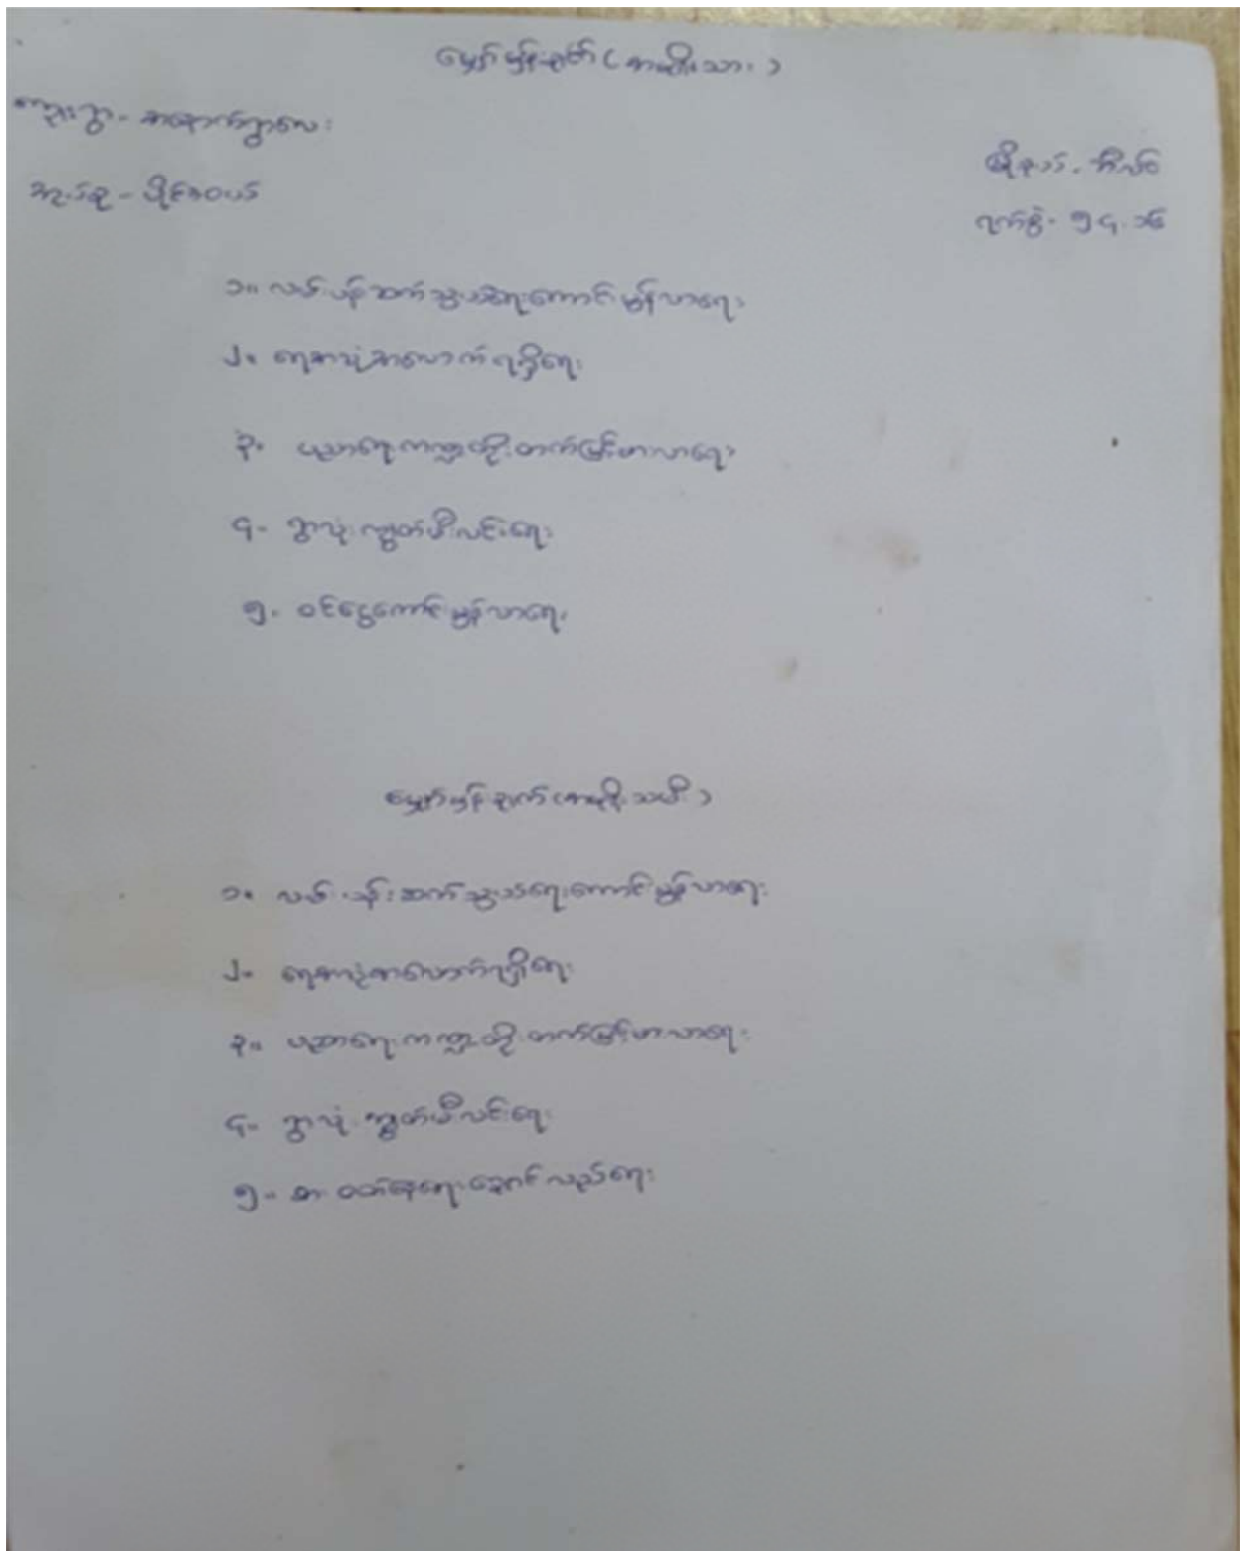 မျှော်မှန်းချက် (အမျိုးသား)
ကျေးရွာ - အနောက်ရွာလေး
အုပ်စု -
မြို့နယ် - တီးတိန်
ရက်စွဲ - ၅.၄.၁၆
၁။ လမ်းပန်းဆက်သွယ်ရေးကောင်းမွန်လာရေး
၂။ ရေအသုံးအလောက်ရရှိရေး
၃။ ပညာရေးကဏ္ဍတိုးတက်မြင့်မားလာရေး
၄။ ရွာလုံးကျွတ်မီးလင်းရေး
၅။ ဝင်ငွေကောင်းမွန်လာရေး
မျှော်မှန်းချက် (အမျိုးသမီး)
၁။ လမ်းပန်းဆက်သွယ်ရေးကောင်းမွန်လာရေး
၂။ ရေအသုံးအလောက်ရရှိရေး
၃။ ပညာရေးကဏ္ဍတိုးတက်မြင့်မားလာရေး
၄။ ရွာလုံးကျွတ်မီးလင်းရေး
၅။ စားဝတ်နေရေးချောင်လည်ရေး